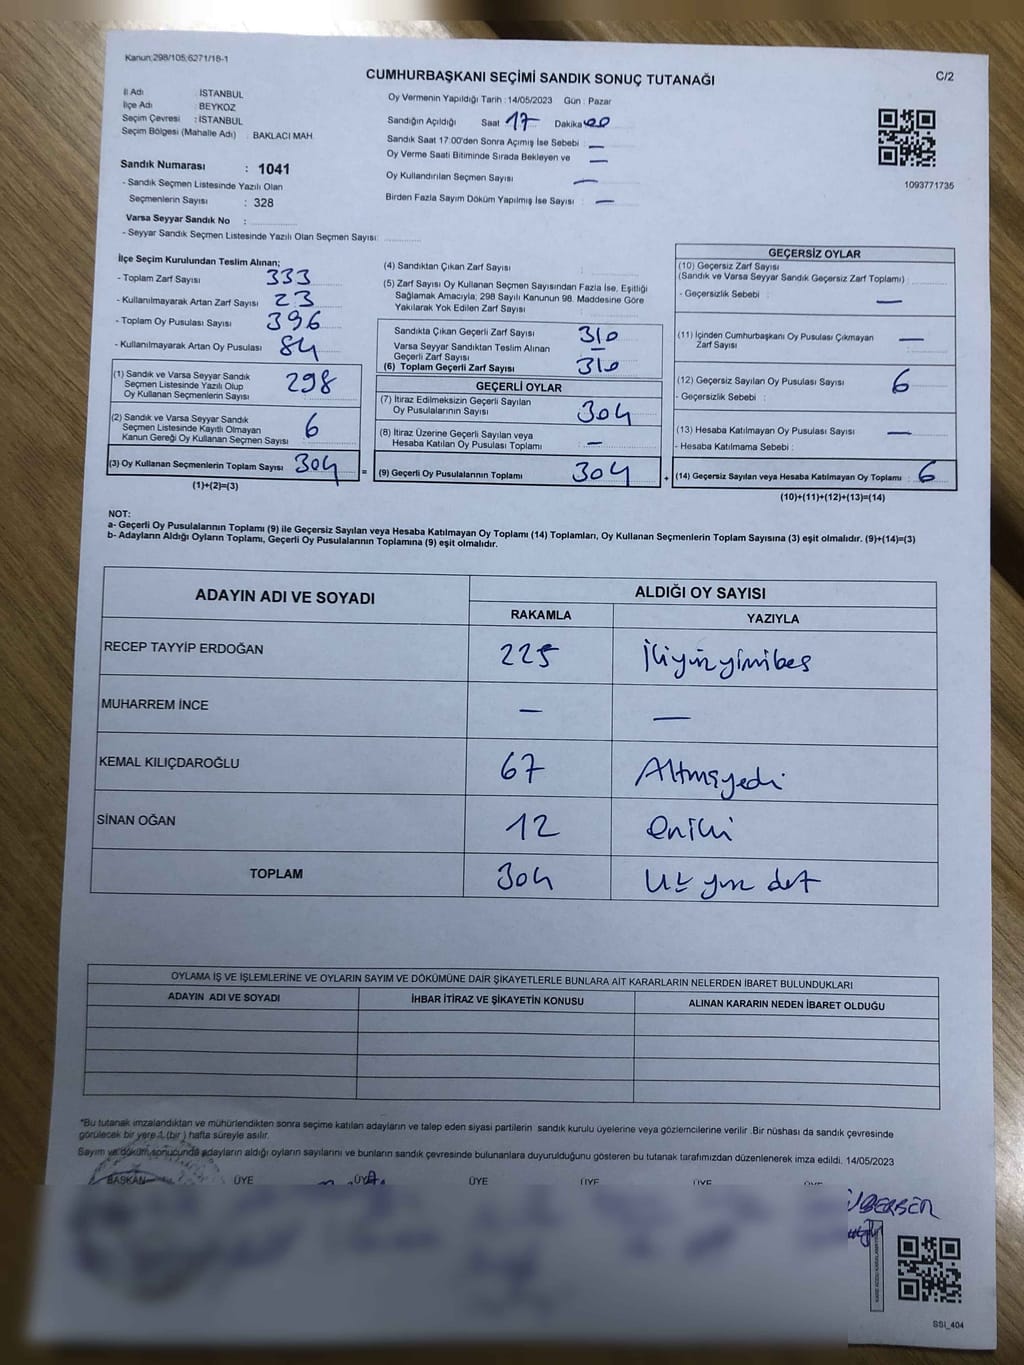 Kanun;298/105;6271/18-1
CUMHURBAŞKANI SEÇİMİ SANDIK SONUÇ TUTANAĞI
C/2
İl Adı : İSTANBUL
İlçe Adı : BEYKOZ
Seçim Çevresi : İSTANBUL
Seçim Bölgesi (Mahalle Adı) : BAKLACI MAH.
Oy Vermenin Yapıldığı Tarih : 14/05/2023 Gün : Pazar
Sandığın Açıldığı Saat 17 Dakika 00
Sandık Saat 17:00'den Sonra Açılmış İse Sebebi : —
Oy Verme Saati Bitiminde Sırada Bekleyen ve —
Oy Kullandırılan Seçmen Sayısı —
Birden Fazla Sayım Döküm Yapılmış İse Sayısı : —
1093771735
Sandık Numarası : 1041
- Sandık Seçmen Listesinde Yazılı Olan
Seçmenlerin Sayısı : 328
Varsa Seyyar Sandık No :
- Seyyar Sandık Seçmen Listesinde Yazılı Olan Seçmen Sayısı:
İlçe Seçim Kurulundan Teslim Alınan;
- Toplam Zarf Sayısı 333
- Kullanılmayarak Artan Zarf Sayısı : 23
- Toplam Oy Pusulası Sayısı : 396
- Kullanılmayarak Artan Oy Pusulası : 84
(1) Sandık ve Varsa Seyyar Sandık
Seçmen Listesinde Yazılı Olup
Oy Kullanan Seçmenlerin Sayısı : 298
(2) Sandık ve Varsa Seyyar Sandık
Seçmen Listesinde Kayıtlı Olmayan
Kanun Gereği Oy Kullanan Seçmen Sayısı : 6
(3) Oy Kullanan Seçmenlerin Toplam Sayısı : 304
(1)+(2)=(3)
(4) Sandıktan Çıkan Zarf Sayısı :
(5) Zarf Sayısı Oy Kullanan Seçmen Sayısından Fazla İse, Eşitliği
Sağlamak Amacıyla; 298 Sayılı Kanunun 98. Maddesine Göre
Yakılarak Yok Edilen Zarf Sayısı :
Sandıkta Çıkan Geçerli Zarf Sayısı : 310
Varsa Seyyar Sandıktan Teslim Alınan
Geçerli Zarf Sayısı : —
(6) Toplam Geçerli Zarf Sayısı : 310
GEÇERLİ OYLAR
(7) İtiraz Edilmeksizin Geçerli Sayılan
Oy Pusulalarının Sayısı : 304
(8) İtiraz Üzerine Geçerli Sayılan veya
Hesaba Katılan Oy Pusulası Toplamı : —
= (9) Geçerli Oy Pusulalarının Toplamı : 304
GEÇERSİZ OYLAR
(10) Geçersiz Zarf Sayısı
(Sandık ve Varsa Seyyar Sandık Geçersiz Zarf Toplamı) :
- Geçersizlik Sebebi : —
(11) İçinden Cumhurbaşkanı Oy Pusulası Çıkmayan
Zarf Sayısı : —
(12) Geçersiz Sayılan Oy Pusulası Sayısı : 6
- Geçersizlik Sebebi :
(13) Hesaba Katılmayan Oy Pusulası Sayısı : —
- Hesaba Katılmama Sebebi :
+ (14) Geçersiz Sayılan veya Hesaba Katılmayan Oy Toplamı : 6
(10)+(11)+(12)+(13)=(14)
NOT:
a- Geçerli Oy Pusulalarının Toplamı (9) ile Geçersiz Sayılan veya Hesaba Katılmayan Oy Toplamı (14) Toplamları, Oy Kullanan Seçmenlerin Toplam Sayısına (3) eşit olmalıdır. (9)+(14)=(3)
b- Adayların Aldığı Oyların Toplamı, Geçerli Oy Pusulalarının Toplamına (9) eşit olmalıdır.
ADAYIN ADI VE SOYADI
ALDIĞI OY SAYISI
RAKAMLA YAZIYLA
RECEP TAYYİP ERDOĞAN 225 İkiyüzyirmibeş
MUHARREM İNCE — —
KEMAL KILIÇDAROĞLU 67 Altmışyedi
SİNAN OĞAN 12 oniki
TOPLAM 304 Üç yüz dört
OYLAMA İŞ VE İŞLEMLERİNE VE OYLARIN SAYIM VE DÖKÜMÜNE DAİR ŞİKAYETLERLE BUNLARA AİT KARARLARIN NELERDEN İBARET BULUNDUKLARI
ADAYIN ADI VE SOYADI İHBAR İTİRAZ VE ŞİKAYETİN KONUSU ALINAN KARARIN NEDEN İBARET OLDUĞU
*Bu tutanak imzalandıktan ve mühürlendikten sonra seçime katılan adayların ve talep eden siyasi partilerin sandık kurulu üyelerine veya gözlemcilerine verilir .Bir nüshası da sandık çevresinde
görülecek bir yere 1 (bir ) hafta süreyle asılır.
Sayım ve döküm sonucunda adayların aldığı oyların sayılarını ve bunların sandık çevresinde bulunanlara duyurulduğunu gösteren bu tutanak tarafımızdan düzenlenerek imza edildi. 14/05/2023
BAŞKAN ÜYE ÜYE ÜYE ÜYE ÜYE ÜYE
SSI_404